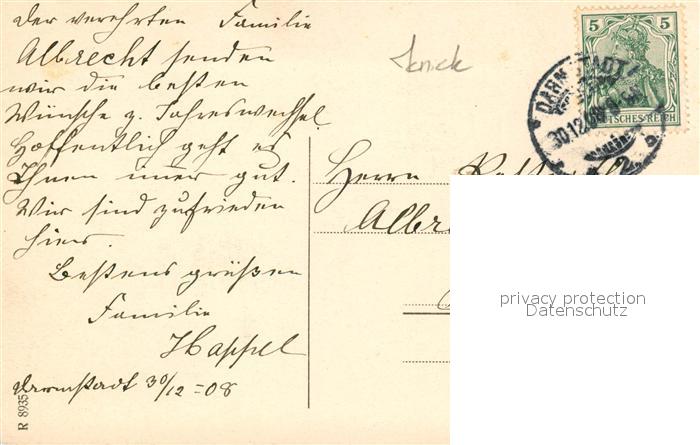 Der verehrten Familie
Albrecht senden
wir die besten
Wünsche z. Jahreswechsel.
Hoffentlich geht es
Ihnen immer gut.
Wir sind zufrieden
hier.
Bestens grüßen
Familie
Happel
Darmstadt 30/12 = 08
R 8935
Knick
5 5
DEUTSCHES REICH
DARMSTADT
30.12.08
Herrn
Albre
privacy protection
Datenschutz